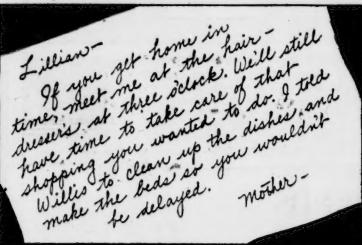 Lillian—
If you get home in
time, meet me at the hair-
dressers at three o'clock. We'll still
have time to take care of that
shopping you wanted to do. I told
Willis to clean up the dishes, and
make the beds so you wouldn't
be delayed.
Mother—